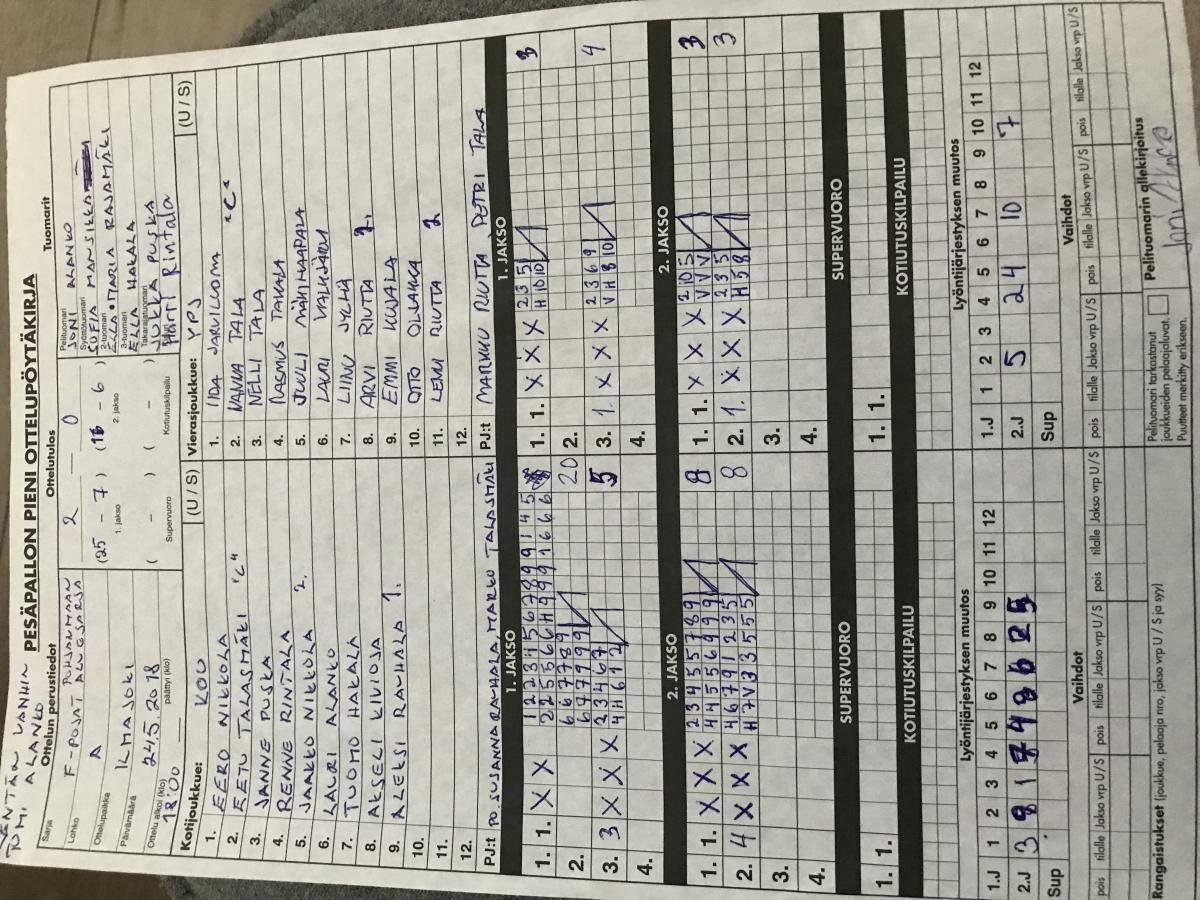 JÄNTÄN VANHIN
TOMI ALANKO
PESÄPALLON PIENI OTTELUPÖYTÄKIRJA
Ottelun perustiedot
Ottelutulos
Tuomarit
Sarja
F-POJAT POHJANMAAN ALUESARJA
Lohko
A
Ottelupaikka
ILMAJOKI
Päivämäärä
24.5.2018
Ottelu alkoi (klo)
18:00
päättyi (klo)
2 — 0
(25 - 7) (16 - 6)
1. jakso
2. jakso
( - ) ( - )
Supervuoro
Kotiutuskilpailu
Pelituomari
JONI ALANKO
Syöttötuomari
SOFIA MANSIKKA
2-tuomari
ELLA-MARIA RAJAMÄKI
3-tuomari
ELLA HAKALA
Takarajatuomari
JUKKA PUSKA
HARRI Rintala
Kotijoukkue: KOU (U / S)
1. EERO NIKKOLA
2. EETU TALASMÄKI "C"
3. JANNE PUSKA
4. RENNE RINTALA
5. JAAKKO NIKKOLA 2.
6. LAURI ALANKO
7. TUOMO HAKALA
8. AKSELI KIVIOJA
9. ALEKSI RAUHALA 1.
10.
11.
12.
PJ:t PO. SUSANNA RAUHALA, MARKO TALASMÄKI
Vierasjoukkue: YPJ (U / S)
1. IIDA JÄRVILUOMA
2. VANNA TALA "C"
3. NELLI TALA
4. RASMUS TAKALA
5. JUULI MÄHI-HAAPALA
6. LAURI VALKJÄRVI
7. LIINU SYLHÄ
8. ARVI RIUTTA 1.
9. EMMI KUJALA
10. OTTO OJAKKA
11. LEMU RIUTTA 2
12.
PJ:t MARKKU RIUTTA PETRI TALA
1. JAKSO
1. 1. X X 1 2 2 3 4 5 6 7 8 9 9 1 4 5
2 2 5 5 6 6 H 9 9 9 1 6 6 6
2. 6 6 7 7 8 9 20
6 7 7 9 9 9
3. 3 X X X 2 3 4 6 7 5
4 H 6 1 2
4.
1. JAKSO
1. 1. X X X 2 3 5 3
H 10 10
2.
3. 1. X X X 2 3 6 9 4
V H 8 10
4.
2. JAKSO
1. 1. X X X 2 3 4 5 5 7 8 9 8
4 4 5 5 6 9 9 9
2. 4 X X X 4 6 7 9 1 2 3 5 8
H 7 V 3 3 5 5 5
3.
4.
2. JAKSO
1. 1. X X X 2 10 5 3
V V V
2. 1. X X X 2 3 5 3
H 5 8
3.
4.
SUPERVUORO
1. 1.
SUPERVUORO
1. 1.
KOTIUTUSKILPAILU
KOTIUTUSKILPAILU
Lyöntijärjestyksen muutos
1 2 3 4 5 6 7 8 9 10 11 12
1.J
2.J 3 9 8 1 7 4 8 6 2 5
Sup
Lyöntijärjestyksen muutos
1 2 3 4 5 6 7 8 9 10 11 12
1.J
2.J 5 2 4 10 7
Sup
Vaihdot
pois tilalle Jakso vrp U / S pois tilalle Jakso vrp U / S pois tilalle Jakso vrp U / S
Vaihdot
pois tilalle Jakso vrp U / S pois tilalle Jakso vrp U / S pois tilalle Jakso vrp U / S
Rangaistukset (joukkue, pelaaja nro, jakso vrp U / S ja syy)
Pelituomari tarkastanut
joukkueiden pelaajaluvat.
Puutteet merkitty erikseen.
Pelituomarin allekirjoitus